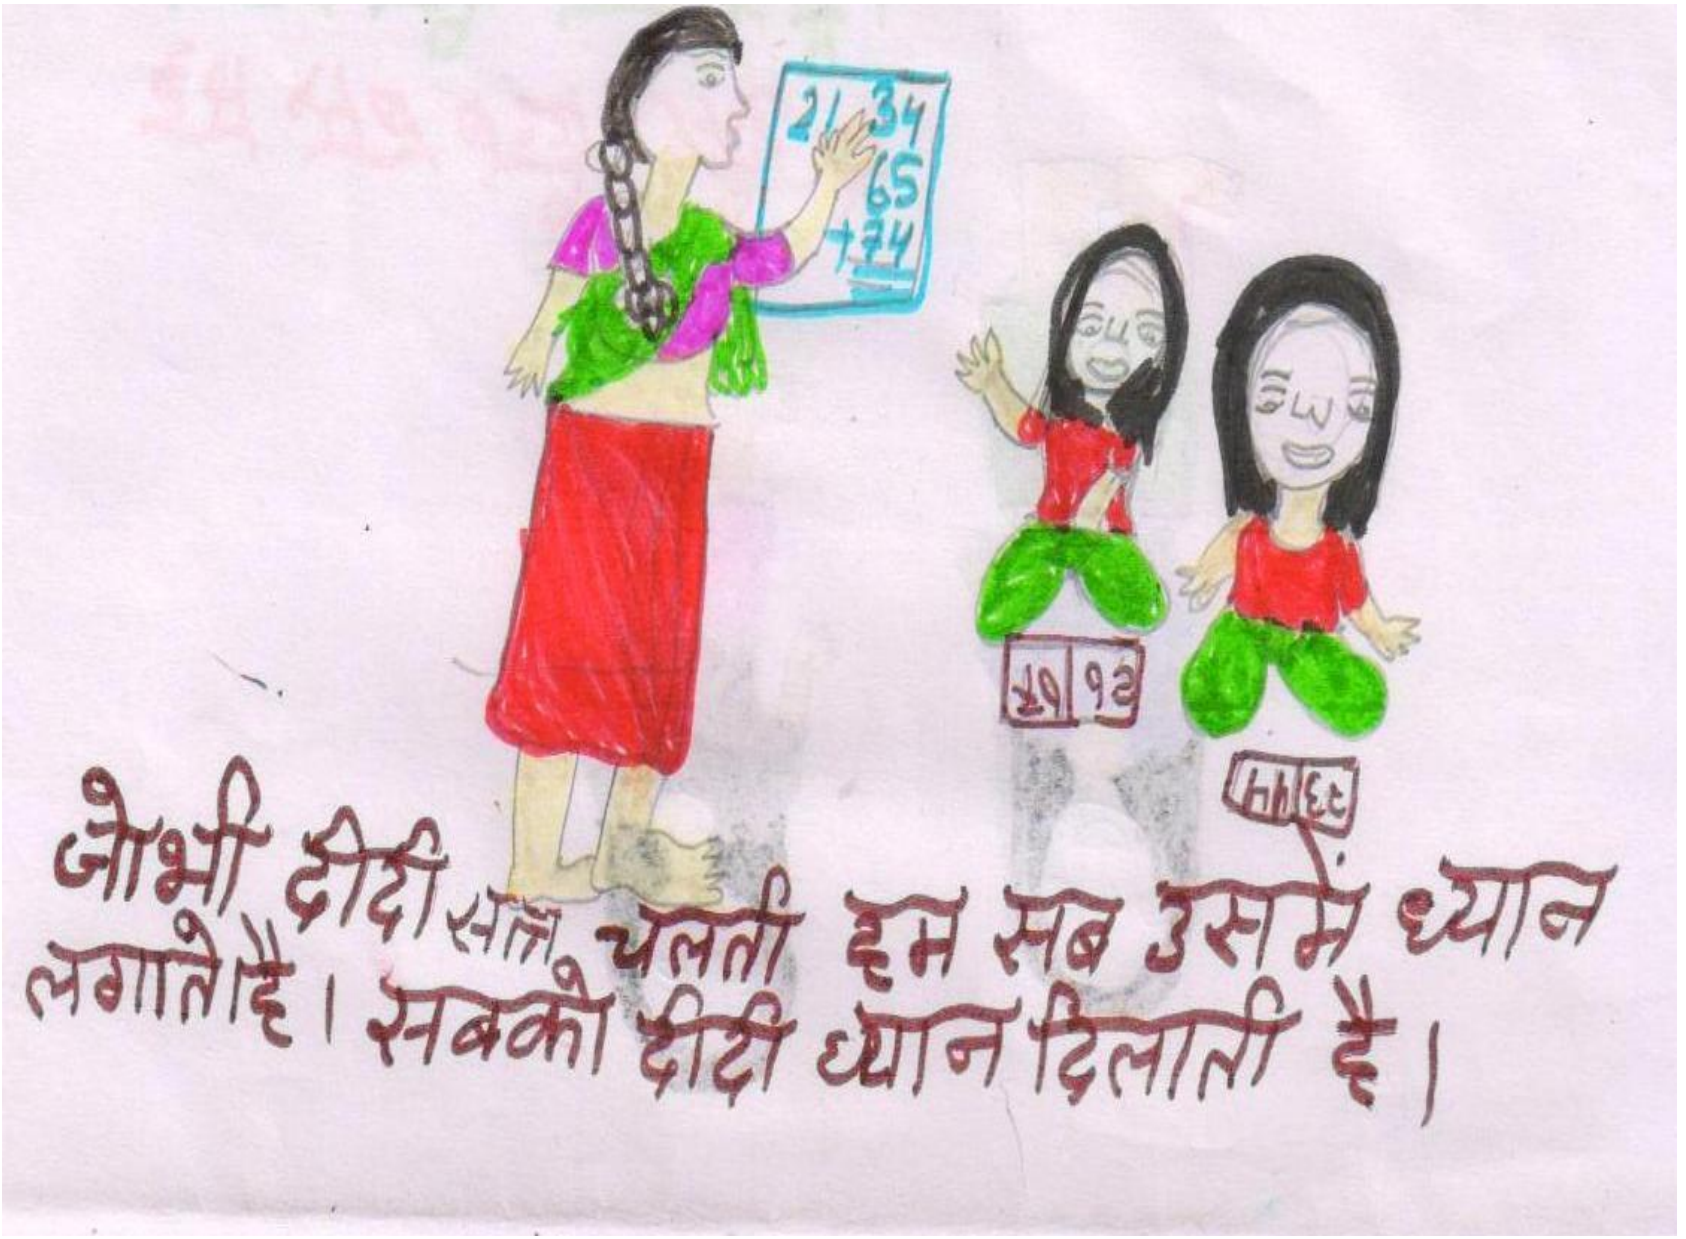 21 34
65
+74
जोभी दीदी सत्र चलती हम सब उसमें ध्यान
लगाते है। सबको दीदी ध्यान दिलाती है।